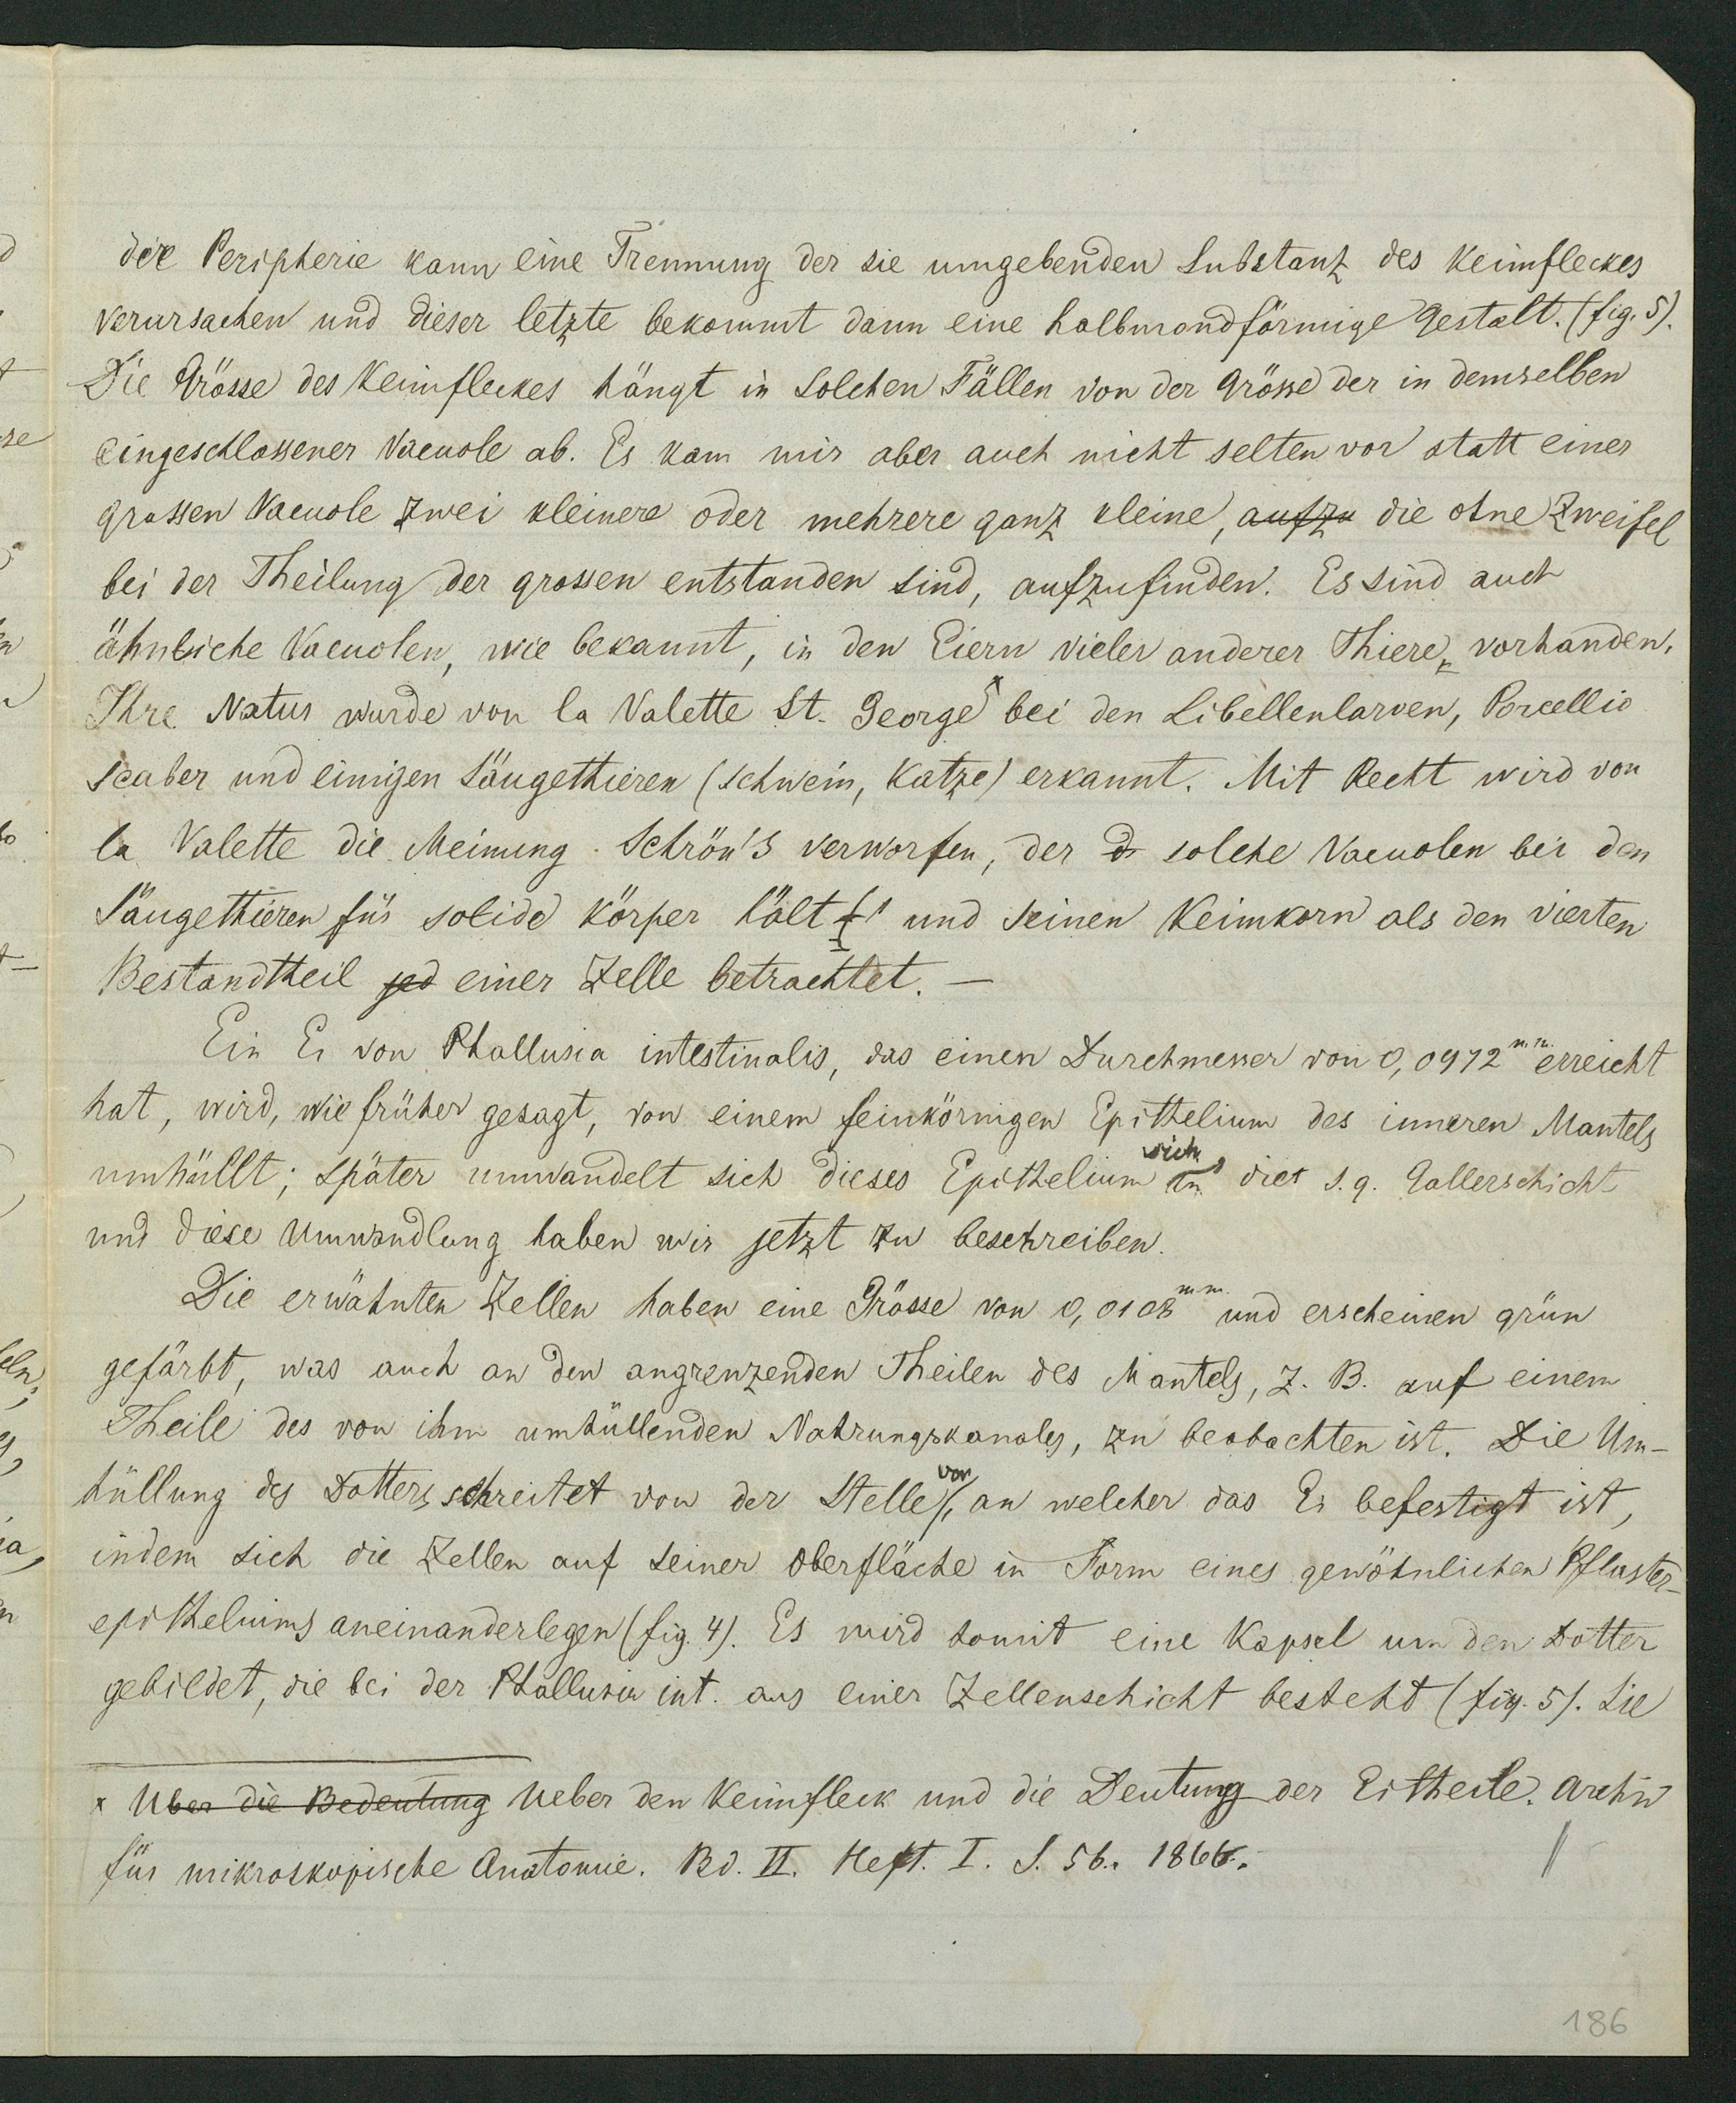 der Peripherie kann eine Trennung der sie umgebenden Substanz des Keimfleckes
verursachen und dieser letzte bekommt dann eine halbmondförmige Gestalt. (fig. 5).
Die Grösse des Keimfleckes hängt in solchen Fällen von der Grösse der in demselben
eingeschlossener Vacuole ab. Es kam mir aber auch nicht selten vor statt einer
grossen Vacuole zwei kleinere oder mehrere ganz kleine, aufzu die ohne Zweifel
bei der Theilung der grossen entstanden sind, aufzufinden. Es sind auch
ähnliche Vacuolen, wie bekannt, in den Eiern vieler anderer Thiere vorhanden.
Ihre Natur wurde von la Valette St. George x bei den Libellenlarven, Porcellio
scaber und einigen Säugethieren (Schwein, Katze) erkannt. Mit Recht wird von
la Valette die Meinung Schrön's verworfen, der solche Vacuolen bei den
Säugethieren für solide Körper hält und seinen Keimkorn als den vierten
Bestandtheil jed einer Zelle betrachtet. —
Ein Ei von Phallusia intestinalis, das einen Durchmesser von 0,0972 m.m. erreicht
hat, wird, wie früher gesagt, von einem feinkörnigen Epithelium des inneren Mantels
umhüllt; später umwandelt sich dieses Epithelium sich in die s.g. Gallerschicht
und diese Umwandlung haben wir jetzt zu beschreiben.
Die erwähnten Zellen haben eine Grösse von 0,0108 m.m. und erscheinen grün
gefärbt, was auch an den angrenzenden Theilen des Mantels, z. B. auf einem
Theile des von ihm umhüllenden Nahrungskanales, zu beobachten ist. Die Um-
hüllung des Dotters schreitet von der Stelle vor, an welcher das Ei befestigt ist,
indem sich die Zellen auf seiner Oberfläche in Form eines gewöhnlichen Pflaster-
epitheliums aneinanderlegen (fig. 4). Es wird somit eine Kapsel um den Dotter
gebildet, die bei der Phallusia int. aus einer Zellenschicht besteht (fig. 5). Die
x Uber die Bedeutung Ueber den Keimfleck und die Deutung der Eitheile. Archiv
für mikroskopische Anatomie. Bd. II. Heft. I. S. 56. 1866.
186